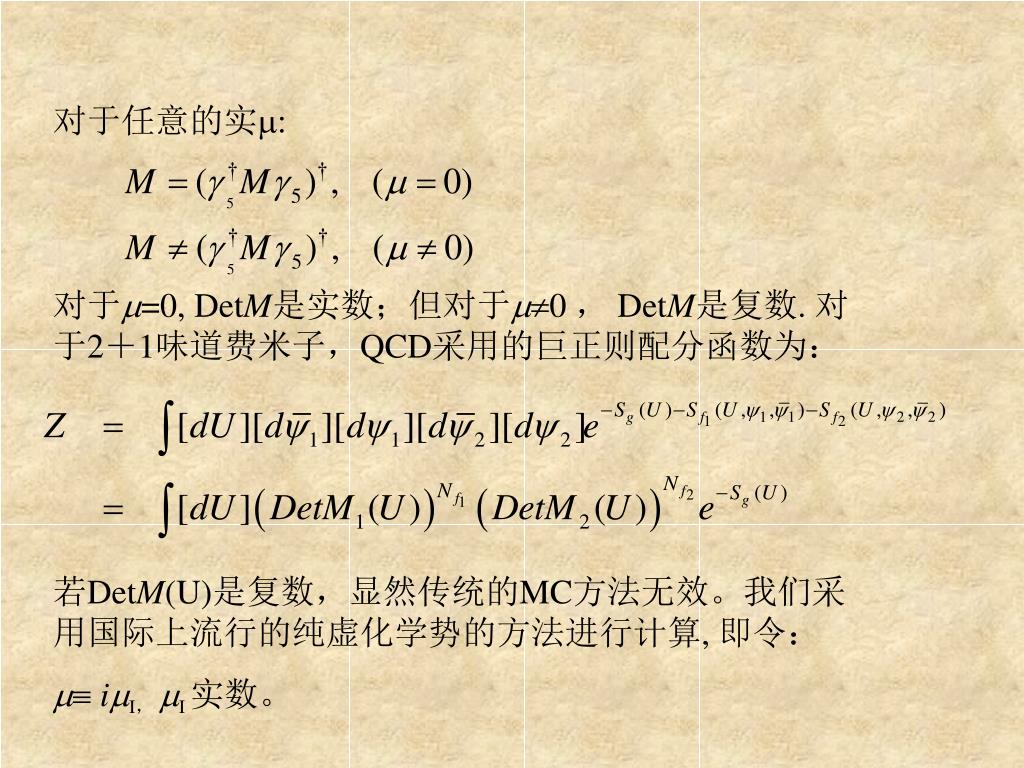 对于任意的实μ:
M = (γ₅†Mγ₅)†, (μ = 0)
M ≠ (γ₅†Mγ₅)†, (μ ≠ 0)
对于μ=0, DetM是实数；但对于μ≠0 ， DetM是复数. 对
于2＋1味道费米子，QCD采用的巨正则配分函数为：
Z = ∫[dU][dψ̅₁][dψ₁][dψ̅₂][dψ₂]e^{−S_g(U)−S_{f₁}(U,ψ₁,ψ̅₁)−S_{f₂}(U,ψ₂,ψ̅₂)}
= ∫[dU](DetM₁(U))^{N_{f₁}} (DetM₂(U))^{N_{f₂}} e^{−S_g(U)}
若DetM(U)是复数，显然传统的MC方法无效。我们采
用国际上流行的纯虚化学势的方法进行计算, 即令：
μ≡ iμ_I, μ_I 实数。